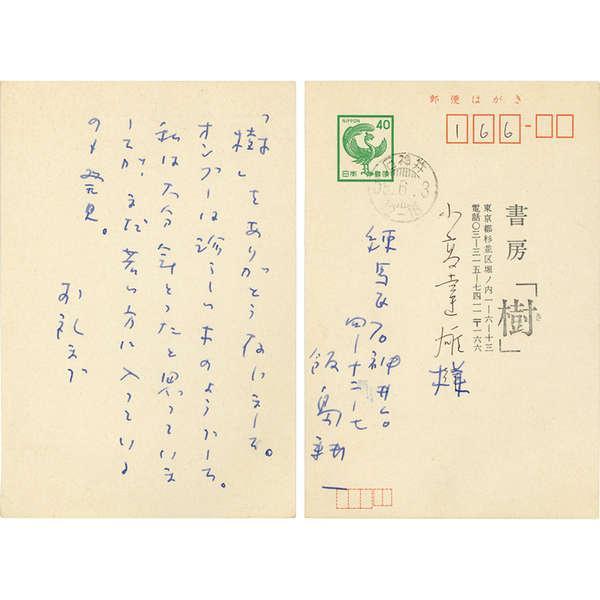 「樹」をありがとうございました。
オンコーは珍らしい木のようです。
私は大分年とったと思っていま
したが、まだ若い方に入っている
のを発見。
お礼まで
郵便はがき
166-
NIPPON 40
日本郵便
石神井
6. 3
書房「樹」
東京都杉並区堀ノ内一ー六ー十三
電話〇三ー三一五ー七四一一〒一六六
様
練馬区石神井台
四ー十二ー七
飯島耕一